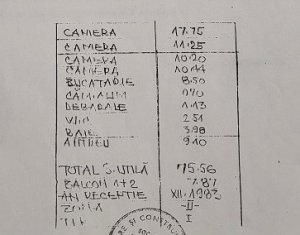 CAMERA 17.75
CAMERA 11.25
CAMERA 10.20
CAMERA 10.44
BUCATARIE 8.50
CĂMARĂ
DEBARALE 1.13
VIII 2.51
BAIE 3.98
ANTREU 9.10
TOTAL S. UTILĂ 75.56
BALCON 1+2 7.87
AN RECEPTIE XII.1983
ZONA -II-
I